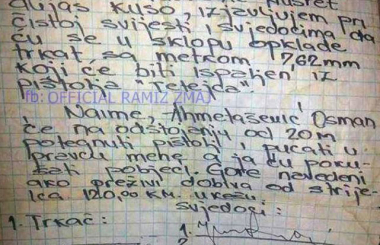 alijas Kušo, izjavljujem pri
čistoj svijesti i svjedocima da
ću se u sklopu opklade
trkat sa metkom 7,62mm
koji će biti ispaljen iz
pištolja "Tetejca"
fb: OFFICIAL RAMIZ ZMAJ
Naime, Ahmetašević Osman
će na odstojanju od 20m
potegnuti pištolj i pucati u
pravcu mene a ja ću poku-
šati pobjeći. Gore navedeni
ako preživi dobiva od strije-
lca 120,00 KM. u kešu
svjedoci:
1. Trkač:
1.